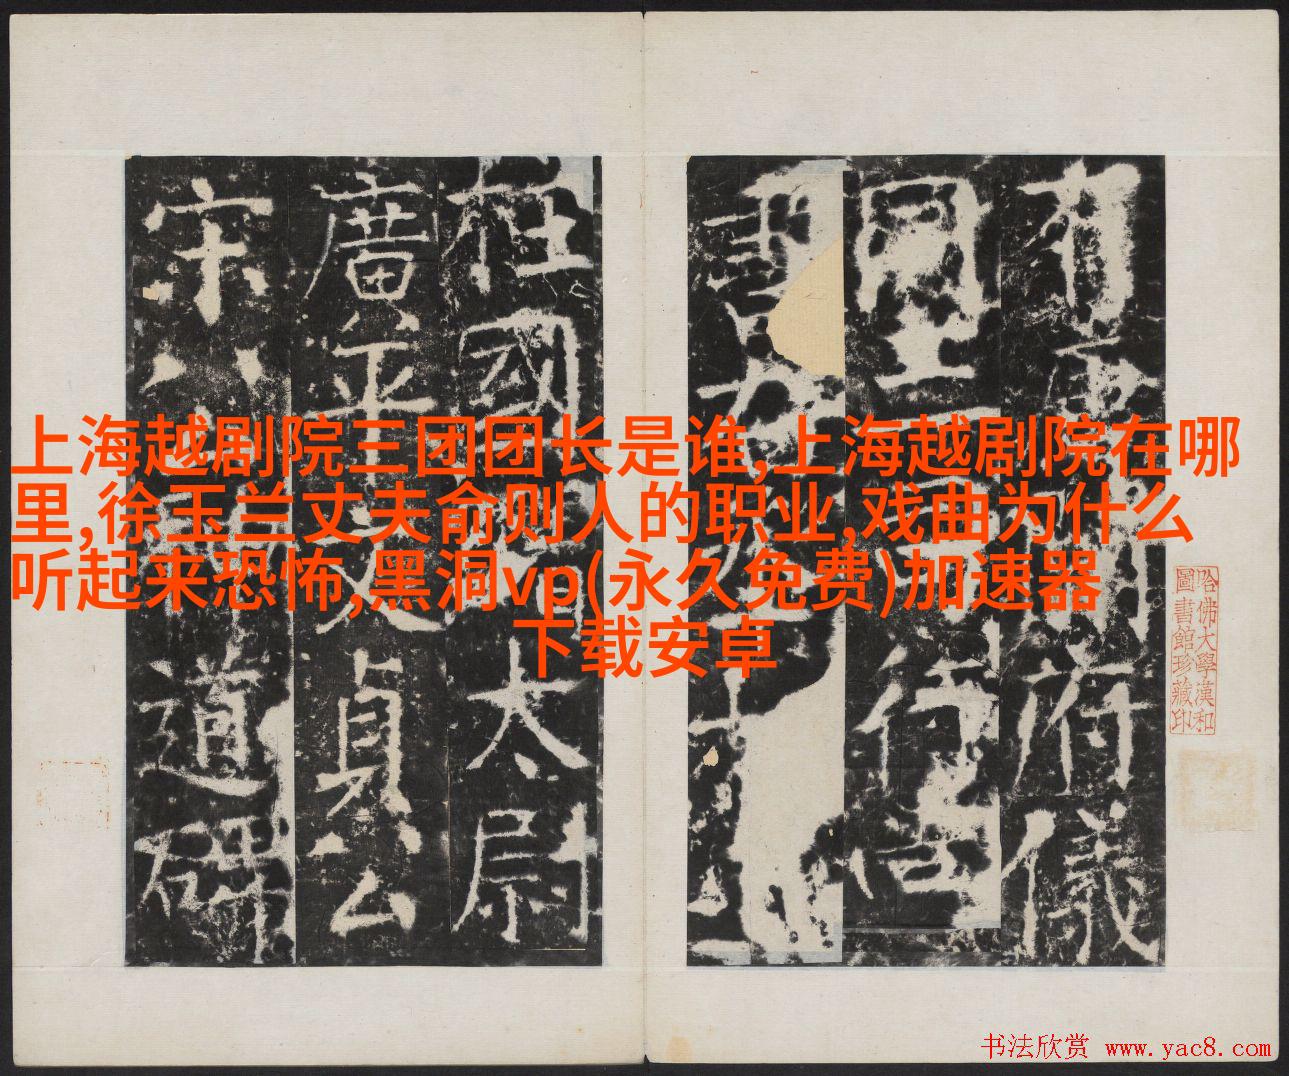 上海越剧院三团团长是谁,上海越剧院在哪
里,徐玉兰丈夫俞则人的职业,戏曲为什么
听起来恐怖,黑洞vp(永久免费)加速器
下载安卓
有府儀
同行
柱國太尉
廣平貞公
宋道碑
哈佛大學漢和
圖書館珍藏印
书法欣赏 www.yac8.com